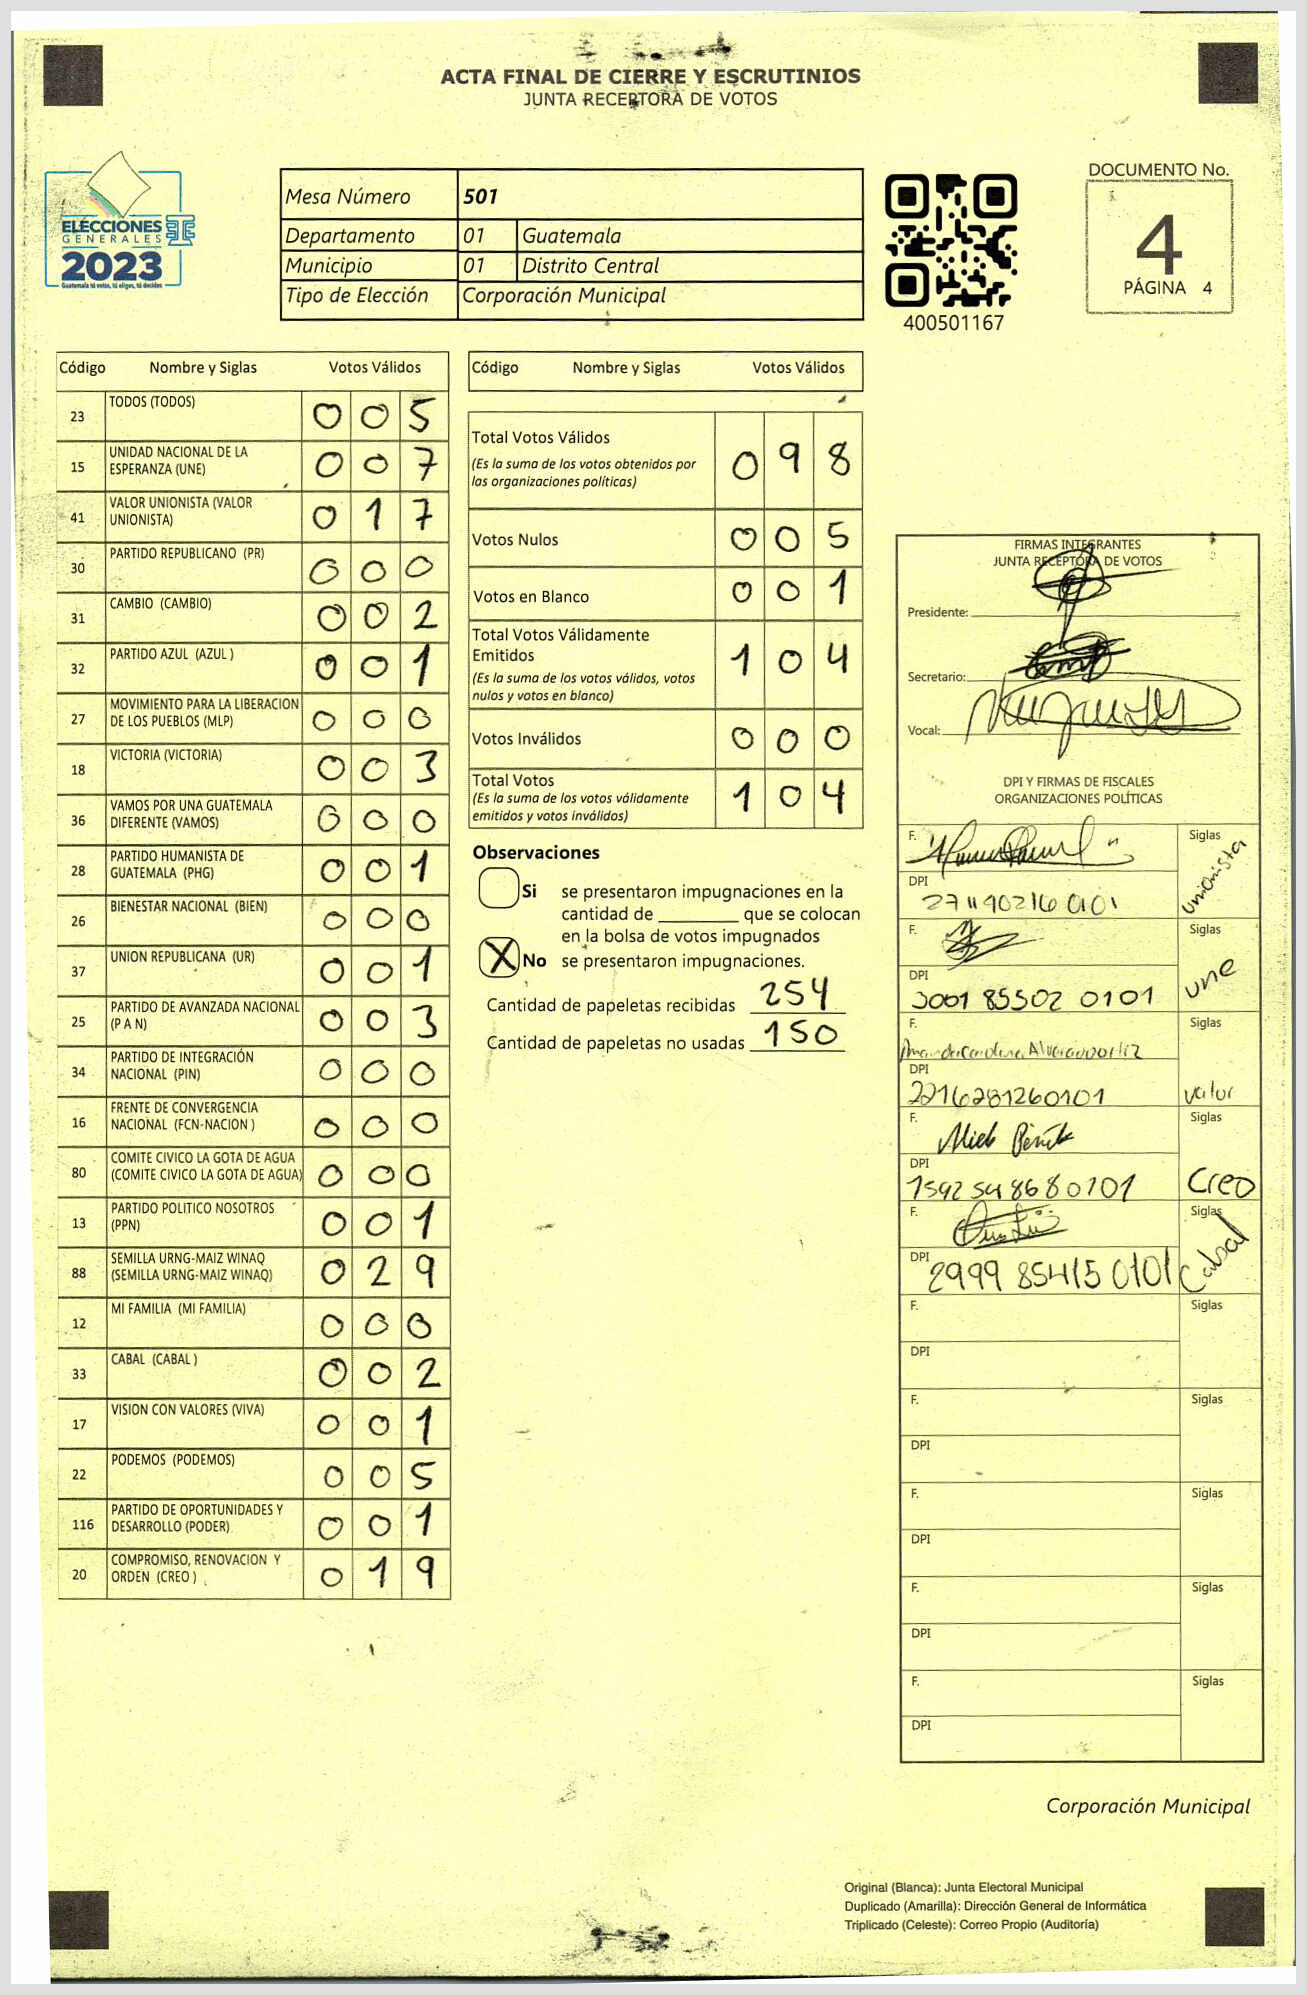 ACTA FINAL DE CIERRE Y ESCRUTINIOS
JUNTA RECEPTORA DE VOTOS
ELECCIONES
GENERALES
2023
Guatemala tú votas, tú eliges, tú decides
Mesa Número 501
Departamento 01 Guatemala
Municipio 01 Distrito Central
Tipo de Elección Corporación Municipal
400501167
DOCUMENTO No.
4
PÁGINA 4
Código Nombre y Siglas Votos Válidos
23 TODOS (TODOS) 0 0 5
15 UNIDAD NACIONAL DE LA
ESPERANZA (UNE) 0 0 7
41 VALOR UNIONISTA (VALOR
UNIONISTA) 0 1 7
30 PARTIDO REPUBLICANO (PR) 0 0 0
31 CAMBIO (CAMBIO) 0 0 2
32 PARTIDO AZUL (AZUL ) 0 0 1
27 MOVIMIENTO PARA LA LIBERACION
DE LOS PUEBLOS (MLP) 0 0 0
18 VICTORIA (VICTORIA) 0 0 3
36 VAMOS POR UNA GUATEMALA
DIFERENTE (VAMOS) 0 0 0
28 PARTIDO HUMANISTA DE
GUATEMALA (PHG) 0 0 1
26 BIENESTAR NACIONAL (BIEN) 0 0 0
37 UNION REPUBLICANA (UR) 0 0 1
25 PARTIDO DE AVANZADA NACIONAL
(P A N) 0 0 3
34 PARTIDO DE INTEGRACIÓN
NACIONAL (PIN) 0 0 0
16 FRENTE DE CONVERGENCIA
NACIONAL (FCN-NACION ) 0 0 0
80 COMITE CIVICO LA GOTA DE AGUA
(COMITE CIVICO LA GOTA DE AGUA) 0 0 0
13 PARTIDO POLITICO NOSOTROS
(PPN) 0 0 1
88 SEMILLA URNG-MAIZ WINAQ
(SEMILLA URNG-MAIZ WINAQ) 0 2 9
12 MI FAMILIA (MI FAMILIA) 0 0 0
33 CABAL (CABAL ) 0 0 2
17 VISION CON VALORES (VIVA) 0 0 1
22 PODEMOS (PODEMOS) 0 0 5
116 PARTIDO DE OPORTUNIDADES Y
DESARROLLO (PODER) 0 0 1
20 COMPROMISO, RENOVACION Y
ORDEN (CREO ) 0 1 9
Código Nombre y Siglas Votos Válidos
Total Votos Válidos 0 9 8
(Es la suma de los votos obtenidos por
las organizaciones políticas)
Votos Nulos 0 0 5
Votos en Blanco 0 0 1
Total Votos Válidamente
Emitidos 1 0 4
(Es la suma de los votos válidos, votos
nulos y votos en blanco)
Votos Inválidos 0 0 0
Total Votos 1 0 4
(Es la suma de los votos válidamente
emitidos y votos inválidos)
Observaciones
Si se presentaron impugnaciones en la
cantidad de ________ que se colocan
en la bolsa de votos impugnados
X No se presentaron impugnaciones.
Cantidad de papeletas recibidas 254
Cantidad de papeletas no usadas 150
FIRMAS INTEGRANTES
JUNTA RECEPTORA DE VOTOS
Presidente:
Secretario:
Vocal:
DPI Y FIRMAS DE FISCALES
ORGANIZACIONES POLÍTICAS
F. Siglas
DPI Unionista
2711902160101
F. Siglas
DPI une
3001 85502 0101
F. Siglas
DPI
2216281260101 valor
F. Siglas
DPI
1592548680101 Creo
F. Siglas
DPI 2999 85415 0101 Cabal
F. Siglas
DPI
F. Siglas
DPI
F. Siglas
DPI
F. Siglas
DPI
F. Siglas
DPI
Corporación Municipal
Original (Blanca): Junta Electoral Municipal
Duplicado (Amarilla): Dirección General de Informática
Triplicado (Celeste): Correo Propio (Auditoría)